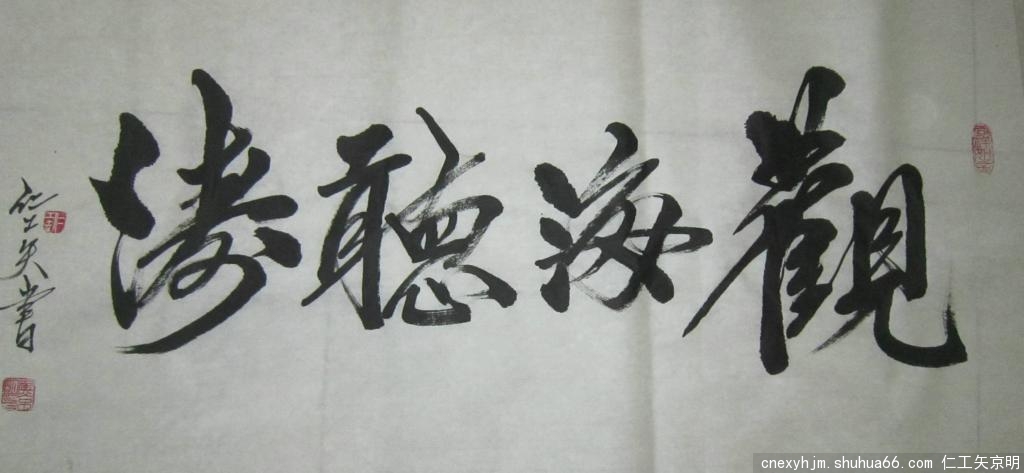 觀海聽濤
仁工矢書
cnexyhjm.shuhua66.com 仁工矢京明